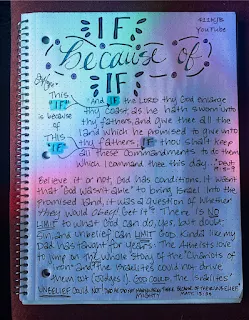 IF
because of
IF
YOUTUBE
This
"IF"
is because
of
THIS
"IF"
"And IF the LORD thy God enlarge
thy coast, as he hath sworn unto
thy fathers, and give thee all the
land which he promised to give unto
thy fathers; IF thou shalt keep
all these commandments to do them
which I command thee this day..." Deut.
Believe it or not, God has conditions, it wasn't
that "God wasn't able" to bring Israel into the
promised land, it was a question of whether
they would obey! Get it? There IS NO
LIMIT to what God can do, yes, but doubt,
sin and unbelief can LIMIT God. Kinda like my
Dad has taught for years. The Atheists love
to jump on the whole story of the "Chariots of
Iron" and the Israelites could not drive
them out (Judges 1). God could. The Israelites'
UNBELIEF COULD NOT.